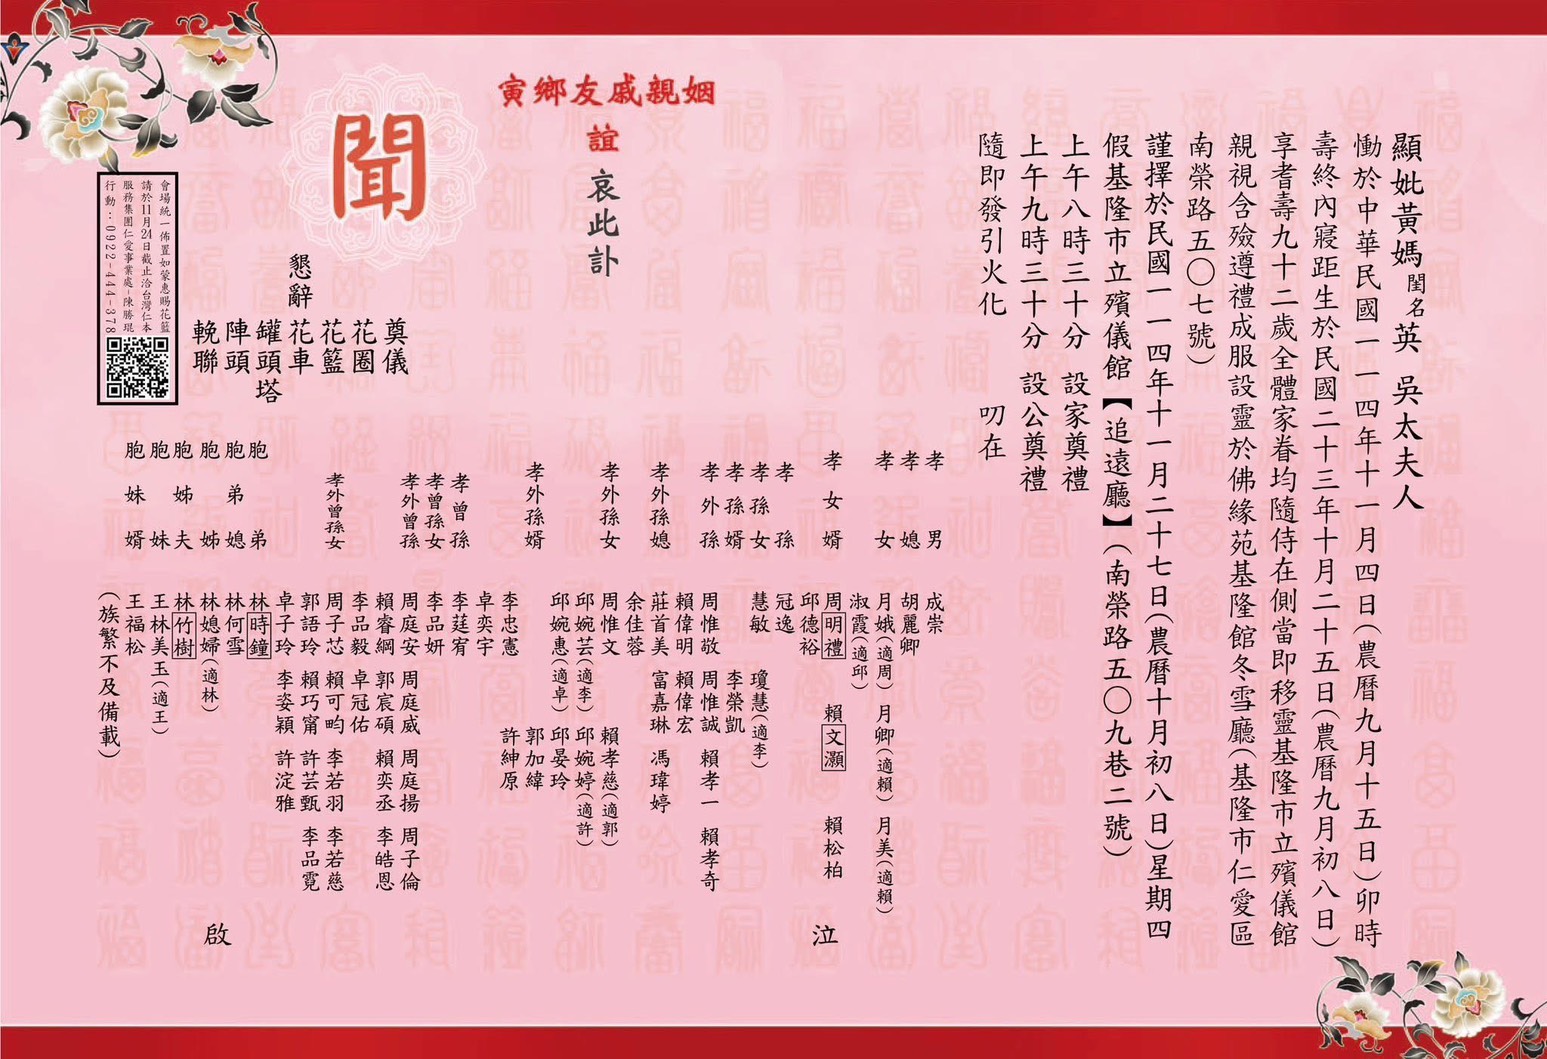 顯妣黃媽閨名英 吳太夫人
慟於中華民國一一四年十一月四日(農曆九月十五日)卯時
壽終內寢距生於民國二十三年十月二十五日(農曆九月初八日)
享耆壽九十二歲全體家眷均隨侍在側當即移靈基隆市立殯儀館
親視含殮遵禮成服設靈於佛緣苑基隆館冬雪廳(基隆市仁愛區
南榮路五〇七號)
謹擇於民國一一四年十一月二十七日(農曆十月初八日)星期四
假基隆市立殯儀館【追遠廳】(南榮路五〇九巷二號)
上午八時三十分 設家奠禮
上午九時三十分 設公奠禮
隨即發引火化 叨在
寅鄉友戚親姻
誼 哀此訃
聞
懇辭
奠儀
花圈
花籃
花車
罐頭塔
陣頭
輓聯
會場統一佈置如蒙惠賜花籃
請於11月24日截止洽台灣仁本
服務集團仁愛事業處-陳勝琨
行動:0922-444-378
孝男 成崇
孝媳 胡麗卿
孝女 月娥(適周) 月卿(適賴) 月美(適賴)
淑霞(適邱)
孝女婿 周明禮 賴文灝 賴松柏
邱德裕
孝孫 冠逸
孝孫女 慧敏 瓊慧(適李)
孝孫婿 李榮凱
孝外孫 周惟敬 周惟誠 賴孝一 賴孝奇
賴偉明 賴偉宏
孝外孫媳 莊首美 富嘉琳 馮瑋婷
余佳蓉
孝外孫女 周惟文 賴孝慈(適郭)
邱婉芸(適李) 邱婉婷(適許)
邱婉惠(適卓) 邱晏玲
孝外孫婿 郭加緯
李忠憲 許紳原
卓奕宇
孝曾孫 李莛宥
孝曾孫女 李品妍
孝外曾孫 周庭安 周庭威 周庭揚 周子倫
賴睿綱 郭宸碩 賴奕丞 李皓恩
李品毅 卓冠佑
孝外曾孫女 周子芯 賴可畇 李若羽 李若慈
郭語玲 賴巧甯 許芸甄 李品霓
卓子玲 李姿穎 許淀雅
胞弟 林時鐘
胞弟媳 林何雪
胞姊 林媳婦(適林)
胞姊夫 林竹樹
胞妹 王林美玉(適王)
胞妹婿 王福松
(族繁不及備載)
泣
啟